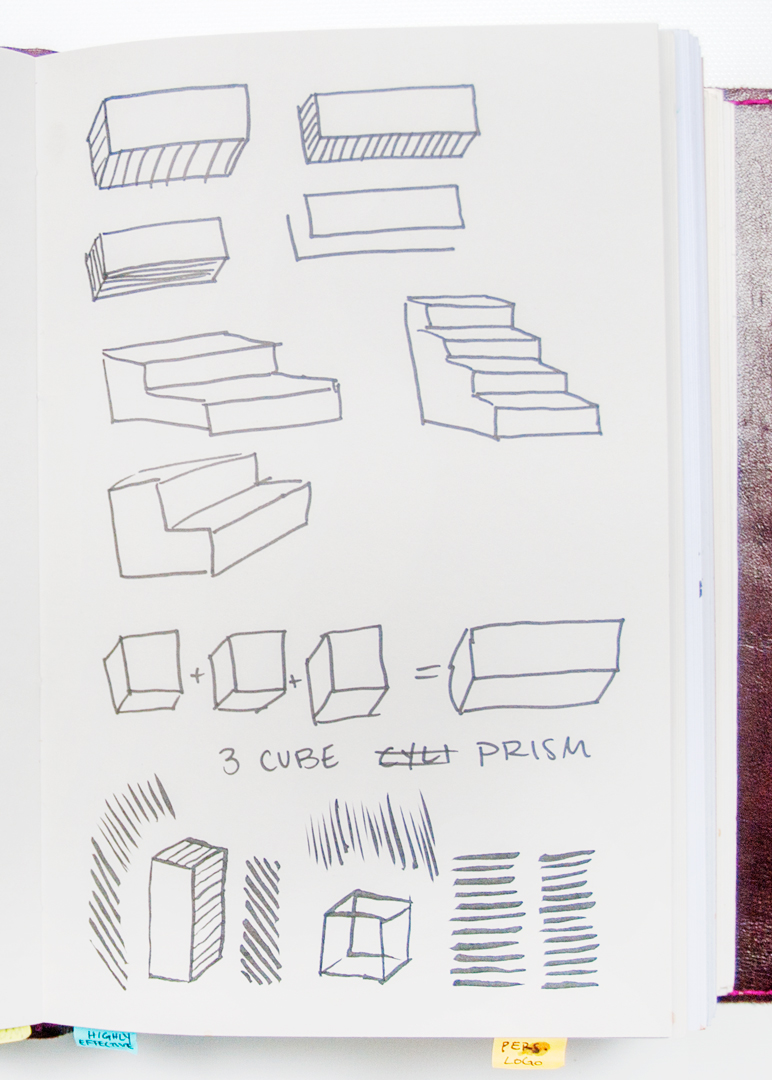 + + =
3 CUBE CYLI PRISM
HIGHLY
EFFECTIVE
PERS.
LOGO